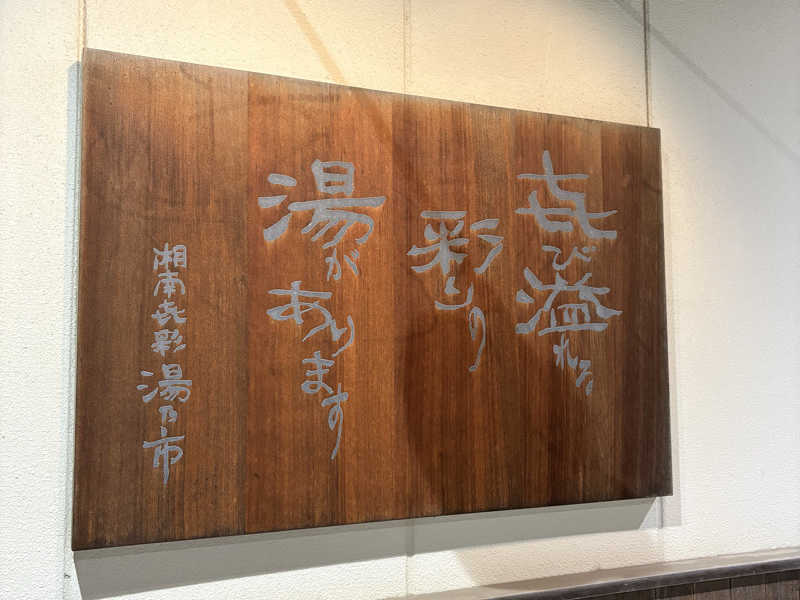 㐂び溢れる
彩りの
湯が
あります
湘南㐂彩 湯乃市